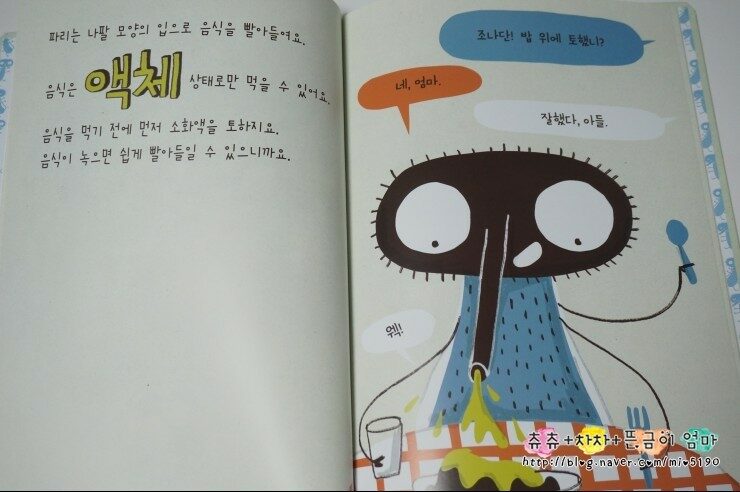 파리는 나팔 모양의 입으로 음식을 빨아들여요.
음식은 액체 상태로만 먹을 수 있어요.
음식을 먹기 전에 먼저 소화액을 토하지요.
음식이 녹으면 쉽게 빨아들일 수 있으니까요.
조나단! 밥 위에 토했니?
네, 엄마.
잘했다, 아들.
웩!
츄츄+차차+뜬금이 엄마
http://blog.naver.com/mio5190